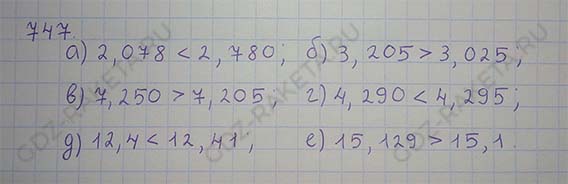 747.
а) 2,078 < 2,780; б) 3,205 > 3,025;
в) 7,250 > 7,205, г) 4,290 < 4,295;
д) 12,4 < 12,41, е) 15,129 > 15,1.
GDZ-RAKETA.RU